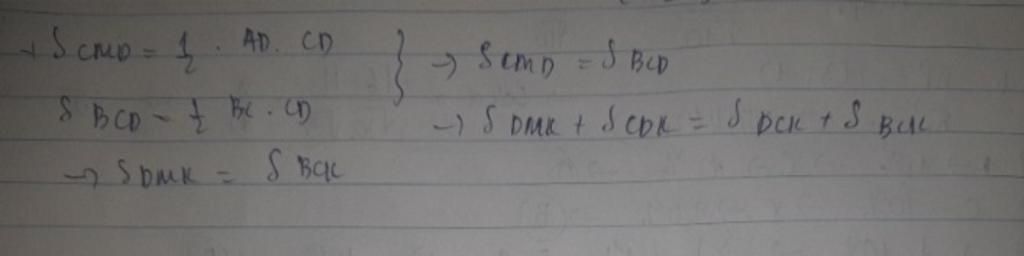 + S CMD = 1/2 . AD. CD } → S CMD = S BCD
S BCD = 1/2 BC . CD → S DMK + S CDK = S DCK + S BCK
→ S DMK = S BCK